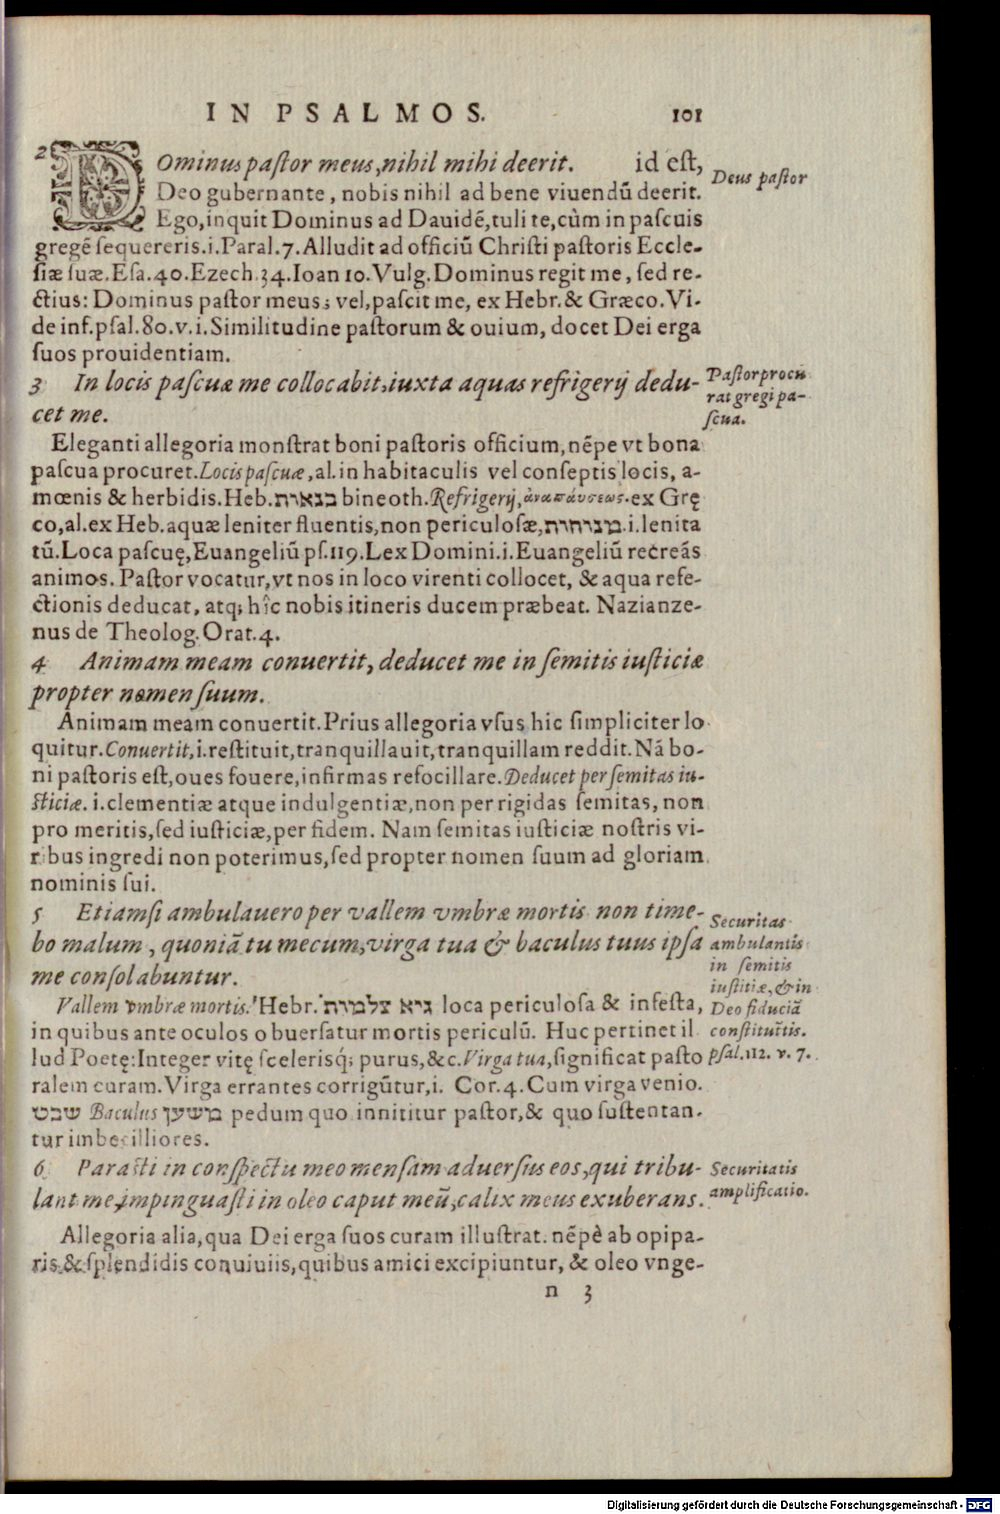 IN PSALMOS. 101
2 DOminus pastor meus, nihil mihi deerit. id est,
Deus pastor
Deo gubernante, nobis nihil ad bene viuendū deerit.
Ego, inquit Dominus ad Dauidē, tuli te, cùm in pascuis
gregē sequereris. i. Paral. 7. Alludit ad officiū Christi pastoris Eccle-
siæ suæ. Esa. 40. Ezech. 34. Ioan 10. Vulg. Dominus regit me, sed re-
ctius: Dominus pastor meus; vel, pascit me, ex Hebr. & Græco. Vi-
de inf. psal. 80. v. i. Similitudine pastorum & ouium, docet Dei erga
suos prouidentiam.
3 In locis pascuæ me collocabit, iuxta aquas refrigerij dedu-
cet me.
Pastor procu
rat gregi pa-
scua.
Eleganti allegoria monstrat boni pastoris officium, nēpe vt bona
pascua procuret. Locis pascuæ, al. in habitaculis vel conseptis locis, a-
mœnis & herbidis. Heb. בנאות bineoth. Refrigerij, ἀναπάυσεως. ex Grę
co, al. ex Heb. aquæ leniter fluentis, non periculosæ, מנוחות. i. lenita
tū. Loca pascuę, Euangeliū ps. 119. Lex Domini. i. Euangeliū recreās
animos. Pastor vocatur, vt nos in loco virenti collocet, & aqua refe-
ctionis deducat, atq; hîc nobis itineris ducem præbeat. Nazianze-
nus de Theolog. Orat. 4.
4 Animam meam conuertit, deducet me in semitis iusticiæ
propter nomen suum.
Animam meam conuertit. Prius allegoria vsus hic simpliciter lo
quitur. Conuertit, i. restituit, tranquillauit, tranquillam reddit. Nā bo-
ni pastoris est, oues fouere, infirmas refocillare. Deducet per semitas iu-
sticiæ. i. clementiæ atque indulgentiæ, non per rigidas semitas, non
pro meritis, sed iusticiæ, per fidem. Nam semitas iusticiæ nostris vi-
ribus ingredi non poterimus, sed propter nomen suum ad gloriam
nominis sui.
5 Etiamsi ambulauero per vallem vmbræ mortis non time-
bo malum, quoniā tu mecum, virga tua & baculus tuus ipsa
me consolabuntur.
Securitas
ambulantis
in semitis
iustitiæ, & in
Deo fiduciā
constituētis.
psal. 112. v. 7.
Vallem vmbræ mortis. Hebr. גיא צלמות loca periculosa & infesta,
in quibus ante oculos obuersatur mortis periculū. Huc pertinet il
lud Poetę: Integer vitę scelerisq; purus, &c. Virga tua, significat pasto
ralem curam. Virga errantes corrigūtur, i. Cor. 4. Cum virga venio.
שבט Baculus משען pedum quo innititur pastor, & quo sustentan-
tur imbecilliores.
6 Parasti in conspectu meo mensam aduersus eos, qui tribu-
lant me, impinguasti in oleo caput meū, calix meus exuberans.
Securitatis
amplificatio.
Allegoria alia, qua Dei erga suos curam illustrat. nēpè ab opipa-
ris & splendidis conuiuiis, quibus amici excipiuntur, & oleo vnge-
n 3
Digitalisierung gefördert durch die Deutsche Forschungsgemeinschaft - DFG